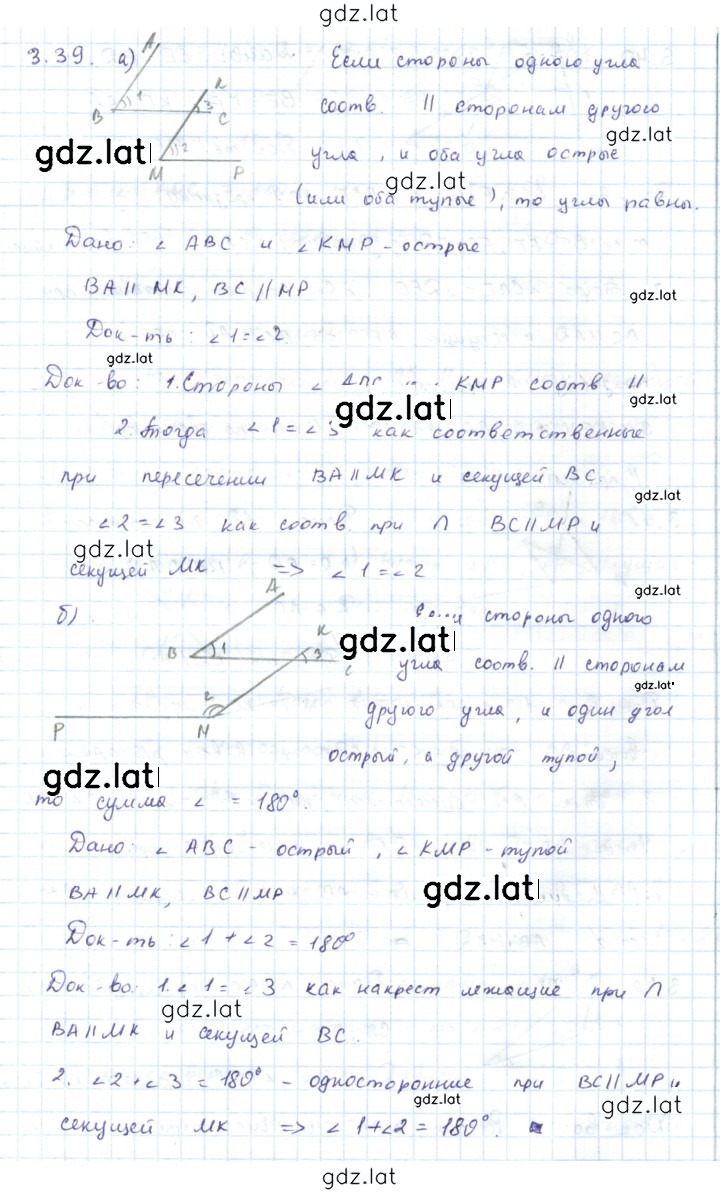 gdz.lat
3.39. а) Если стороны одного угла
A
K
1
3
B
C
соотв. || сторонам другого
gdz.lat
gdz.lat
2
угла, и оба угла острые
M
P
gdz.lat
(или оба тупые), то углы равны.
Дано: ∠ ABC и ∠ KMP - острые
BA || MK, BC || MP
gdz.lat
Док-ть: ∠1=∠2.
gdz.lat
Док-во: 1. Стороны ∠ KMP соотв ||
gdz.lat
gdz.lat
2. Тогда ∠1=∠3 как соответственные
при пересечении BA || MK и секущей BC.
gdz.lat
∠2=∠3 как соотв. при ∩ BC || MP и
gdz.lat
секущей MK => ∠1=∠2
gdz.lat
б) стороны одного
A
K
gdz.lat
B
1
3
C
угла соотв. || сторонам
gdz.lat
2
P
M
другого угла, и один угол
острый, а другой тупой,
gdz.lat
то сумма ∠ = 180°.
Дано: ∠ ABC - острый, ∠ KMP - тупой
BA || MK, BC || MP
gdz.lat
Док-ть: ∠1+∠2=180°
Док-во: 1. ∠1=∠3 как накрест лежащие при ∩
gdz.lat
BA || MK и секущей BC.
2. ∠2+∠3=180° - односторонние при BC || MP и
gdz.lat
gdz.lat
секущей MK => ∠1+∠2=180°.
gdz.lat